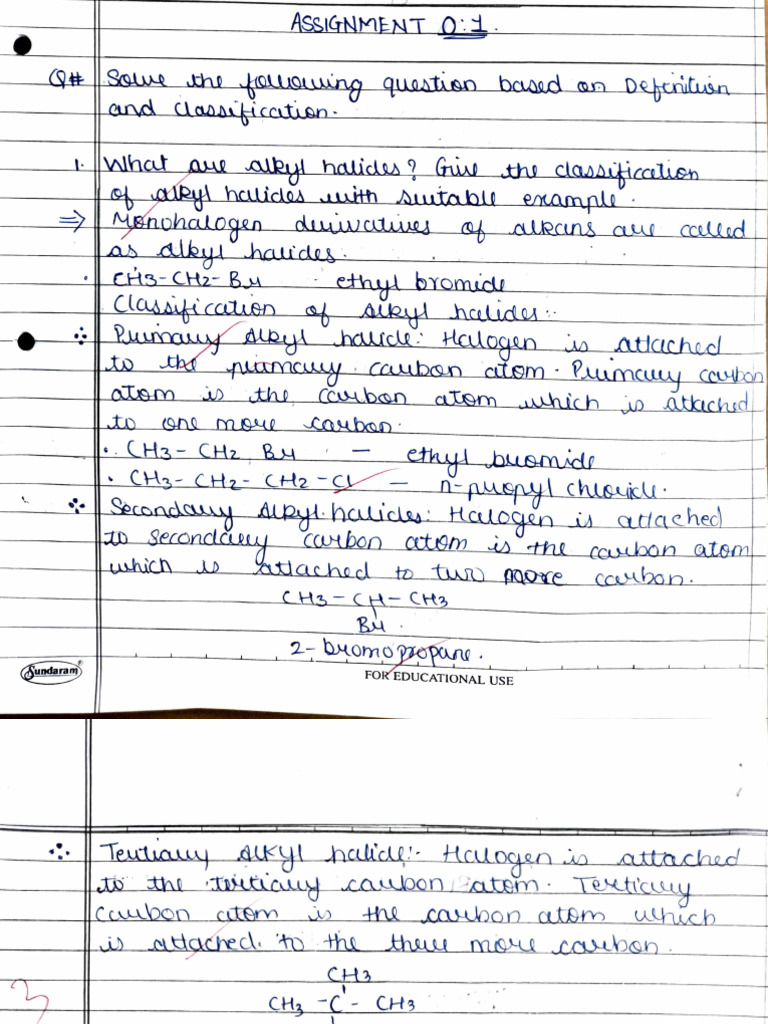 ASSIGNMENT 0:1.
Q# Solve the following question based on Definition
and Classification.
1. What are alkyl halides? Give the classification
of alkyl halides with suitable example.
⇒ Monohalogen derivatives of alkans are called
as alkyl halides.
. CH3-CH2-Br . ethyl bromide
Classification of Alkyl halides:-
Primary Alkyl halide: Halogen is attached
to the primary carbon atom. Primary carbon
atom is the carbon atom which is attached
to one more carbon.
. CH3- CH2 Br — ethyl bromide
. CH3- CH2- CH2 -Cl — n-propyl chloride.
Secondary Alkyl halides: Halogen is attached
to secondary carbon atom is the carbon atom
which is attached to two more carbon.
CH3-CH-CH3
Br.
2-bromopropane.
Sundaram
FOR EDUCATIONAL USE
Tertiary Alkyl halide:- Halogen is attached
to the tertiary carbon atom. Tertiary
carbon atom is the carbon atom which
is attached to the there more carbon.
CH3
CH3 -C- CH3
3